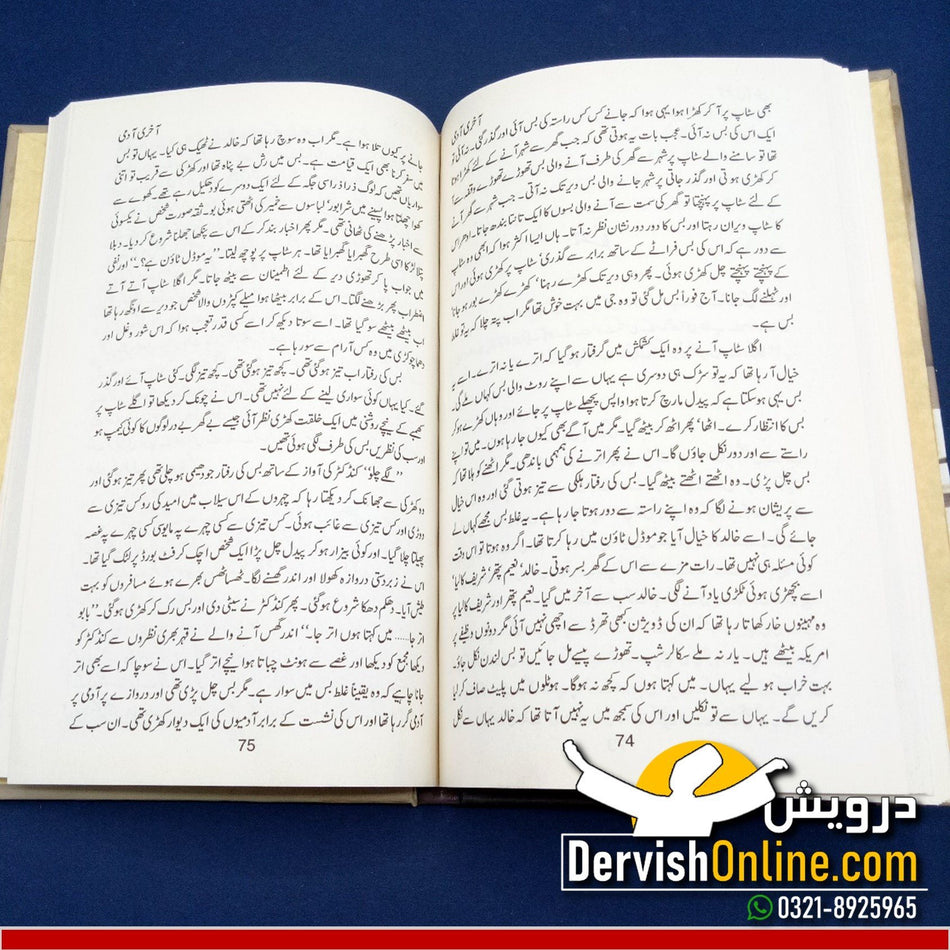 آخری آدمی
بھی سٹاپ پر آ کر کھڑا ہوا یہی ہوا کہ جانے کس کس راستہ کی بس آئی اور گذر گئی، نہ آئی تو
ایک اس کی بس نہ آئی۔ عجب بات یہ ہوتی تھی کہ جب گھر سے شہر آنے کے لئے کھڑا ہوتا
تھا تو سامنے والے سٹاپ پر شہر سے گھر کی طرف آنے والی بس تھوڑے تھوڑے وقفہ سے
کر کھڑی ہوتی اور گذر جاتی پر شہر جانے والی بس دیر تک نہ آتی۔ جب شہر سے گھر آنے
کے لئے سٹاپ پر پہنچتا تو گھر کی سمت سے آنے والی بسوں کا ایک تانتا بندھ جاتا۔ ادھر اس
کا سٹاپ ویران رہتا اور بس کا دور دور نشان نظر نہ آتا۔ ہاں ایسا اکثر ہوا کہ ابھی وہ سٹاپ
سے دور ہے کہ اس کی بس فراٹے کے ساتھ برابر سے گذری، سٹاپ پر کھڑی ہوئی اور اس
کے پہنچتے پہنچتے چل کھڑی ہوئی۔ پھر وہی دیر تک کھڑے رہنا، کھڑے کھڑے بور ہو جانا
اور ٹہلنے لگ جانا۔ آج فوراً بس مل گئی تو وہ جی میں بہت خوش تھا مگر اب پتہ چلا کہ یہ تو غلط
بس ہے۔
اگلا سٹاپ آنے پر وہ ایک کشمکش میں گرفتار ہو گیا کہ اترے یا نہ اترے۔ اسے یہ
خیال آ رہا تھا کہ یہ تو سڑک ہی دوسری ہے یہاں سے اپنے روٹ والی بس کہاں ملے گی۔
بس یہی ہو سکتا ہے کہ پیدل مارچ کرتا ہوا واپس پچھلے سٹاپ پر جائے اور وہاں کھڑے ہو کر
بس کا انتظار کرے۔ اٹھا، پھر اٹھ کر بیٹھ گیا۔ مگر میں آگے بھی کیوں جا رہا ہوں۔ میں تو اپنے
راستے سے اور دور نکل جاؤں گا۔ اس نے پھر اترنے کی ہمہمی باندھی۔ مگر اٹھنے کو ہلا تھا کہ
بس چل پڑی۔ وہ اٹھتے اٹھتے بیٹھ گیا۔ بس کی رفتار ہلکی سے تیز ہوتی گئی اور وہ اس خیال
سے پریشان ہونے لگا کہ وہ اپنے راستہ سے دور ہوتا جا رہا ہے۔ یہ غلط بس مجھے کہاں لے
جائے گی۔ اسے خالد کا خیال آیا جو موڈل ٹاؤن میں رہا کرتا تھا۔ اگر وہ ہوتا تو اس وقت
کوئی مسئلہ ہی نہیں تھا۔ رات مزے سے اس کے گھر بسر ہوتی۔ خالد، نعیم پتھر، شریف کالیا،
اسے بچھڑی ہوئی ٹکڑی یاد آنے لگی۔ خالد سب سے آخر میں گیا۔ نعیم پتھر اور شریف کالیا پر
وہ مہینوں خار کھاتا رہا تھا کہ ان کی ڈویژن کبھی تھرڈ سے اچھی نہیں آئی مگر دونوں وظیفے پر
امریکہ بیٹھے ہیں۔ یار نہ ملے سکالرشپ۔ تھوڑے پیسے مل جائیں تو بس لندن نکل جاؤ۔
بہت خراب ہو لیے یہاں۔ میں کہتا ہوں کہ کچھ نہ ہوگا۔ ہوٹلوں میں پلیٹ صاف کر لیا
کریں گے۔ یہاں سے تو نکلیں اور اس کی سمجھ میں یہ نہیں آتا تھا کہ خالد یہاں سے نکل
74
آخری آدمی
جانے پر کیوں تلا ہوا ہے۔ مگر اب وہ سوچ رہا تھا کہ خالد نے ٹھیک ہی کیا۔ یہاں تو بس
میں سفر کرنا بھی ایک قیامت ہے۔ بس میں رش بے پناہ تھا اور کھڑکی کے قریب تو اتنی
سواریاں تھیں کہ لوگ ذرا ذرا سی جگہ کے لئے ایک دوسرے کو دھکیل رہے تھے۔ کھوے سے
کھوا چھلتا ہوا پسینے میں شرابور، لباسوں سے خمیر کی اٹھتی ہوئی بو۔ ثقہ صورت شخص نے یکسوئی
سے اخبار پڑھنے کی ٹھانی تھی۔ مگر پھر اخبار بند کر کے اس سے پنکھا جھلنا شروع کر دیا۔ دبلا
پتلا لڑکا اسی طرح گھبرایا گھبرایا تھا۔ ہر سٹاپ پر پوچھ لیتا۔ ’’یہ موڈل ٹاؤن ہے؟۔‘‘ اور نفی
میں جواب پا کر تھوڑی دیر کے لئے اطمینان سے بیٹھ جاتا۔ مگر اگلا سٹاپ آتے آتے
اضطراب پھر بڑھنے لگتا۔ اس کے برابر بیٹھا ہوا میلے کپڑوں والا شخص جو دیر سے اونگھ رہا تھا
اب بیٹھے بیٹھے سو گیا تھا۔ اسے سوتا دیکھ کر اسے کسی قدر تعجب ہوا کہ اس شور و غل اور
دھما چوکڑی میں وہ کس آرام سے سو رہا ہے۔
بس کی رفتار اب تیز ہو گئی تھی۔ کچھ تیز ہو گئی تھی۔ کچھ تیز لگی۔ کئی سٹاپ آئے اور گذر
گئے۔ کیا یہاں کوئی سواری لینے کے لئے نہیں تھی۔ اس نے چونک کر دیکھا تو اگلے سٹاپ پر
کھمبے کے نیچے روشنی میں ایک خلقت کھڑی نظر آئی جیسے بے گھر بے در لوگوں کا کوئی کیمپ ہو
اور سب کی نظریں بس کی طرف لگی ہوئی تھیں۔
’’لگے چلو‘‘ کنڈکٹر کی آواز کے ساتھ بس کی رفتار جو دھیمی ہو چلی تھی پھر تیز ہو گئی اور
وہ کھڑکی سے جھانک کر دیکھتا رہا کہ چہروں کے اس سیلاب میں امید کی روشنی کس تیزی سے
دوڑی اور کس تیزی سے غائب ہوئی۔ کس تیزی سے کسی چہرے پہ مایوسی کسی چہرے پہ غصہ
پھیلتا چلا گیا۔ اور کوئی بیزار ہو کر پیدل چل پڑا ایک شخص اچک کر فٹ بورڈ پر لٹک گیا تھا۔
اس نے زبردستی دروازہ کھولا اور اندر گھسنے لگا۔ ٹھساٹھس بھرے ہوئے مسافروں کو بہت
طیش آیا۔ دھکم دھکا شروع ہو گئی۔ پھر کنڈکٹر نے سیٹی دی اور بس رک کر کھڑی ہو گئی۔ ’’بابو
اتر جا..... میں کہتا ہوں اتر جا۔‘‘ اندر گھس آنے والے نے قہر بھری نظروں سے کنڈکٹر کو
دیکھا مجمع کو دیکھا اور غصے سے ہونٹ چباتا ہوا نیچے اتر گیا۔ اس نے سوچا کہ اسے بھی اتر
جانا چاہیے کہ وہ یقیناً غلط بس میں سوار ہے۔ مگر بس چل پڑی تھی اور دروازے پر آدمی پر
آدمی گر رہا تھا اور اس کی نشست کے برابر آدمیوں کی ایک دیوار کھڑی تھی۔ ان سب کے
75
درویش
DervishOnline.com
0321-8925965